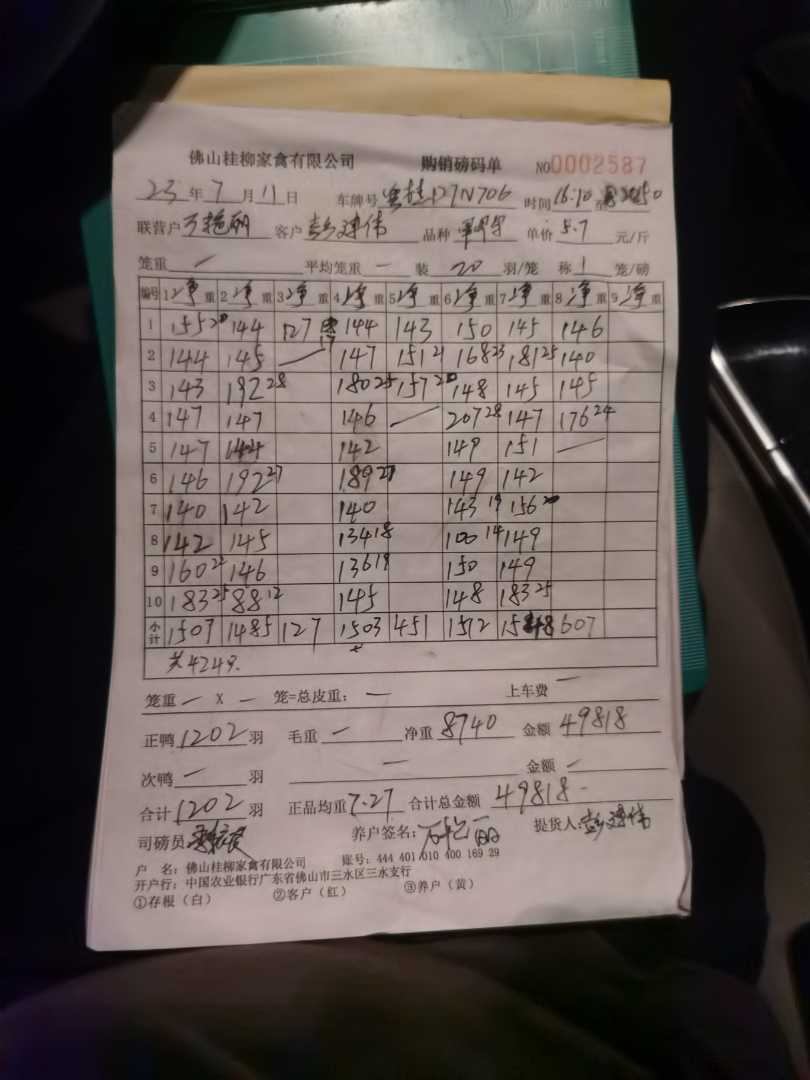 佛山桂柳家禽有限公司 购销磅码单 NO0002587
23年7月11日 车牌号 127N706 时间16.10至
联营户万艳丽 客户彭建伟 品种 单价5.7元/斤
笼重— 平均笼重— 装20羽/笼 称1笼/磅
编号 1净重 2净重 3净重 4净重 5净重 6净重 7净重 8净重 9净重
1 155 20 144 127 17 144 143 150 145 146
2 144 145 — 147 151 21 168 23 181 25 140
3 143 192 28 180 25 157 20 148 145 145
4 147 147 146 — 207 28 147 176 24
5 147 144 142 149 151 —
6 146 192 27 189 27 149 142
7 140 142 140 143 19 156 20
8 142 145 134 18 100 14 149
9 160 146 136 19 150 149
10 183 25 88 12 145 148 183 25
小计 1507 1485 127 1503 451 1512 1548 607
共4249.
笼重— X —笼=总皮重:— 上车费—
正鸭1202羽 毛重— 净重8740 金额49818
次鸭—羽 — 金额—
合计1202羽 正品均重7.27 合计总金额49818-
司磅员 养户签名:万艳丽 提货人:彭建伟
户 名:佛山桂柳家禽有限公司 账号:444 401 010 400 169 29
开户行:中国农业银行广东省佛山市三水区三水支行
①存根(白) ②客户(红) ③养户(黄)